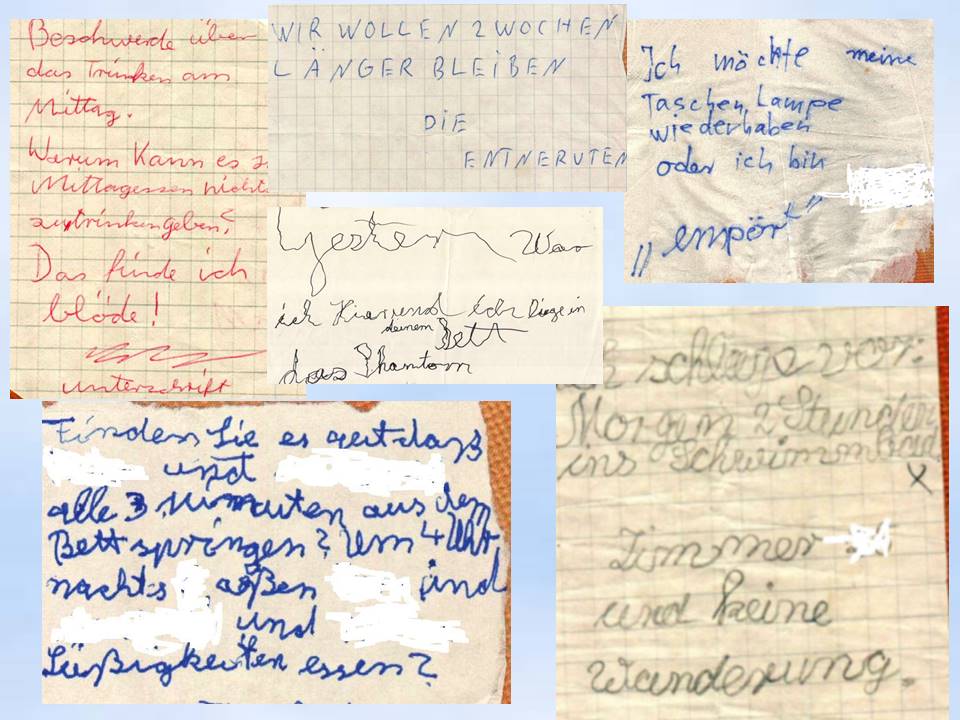 Beschwerde über
das Trinken am
Mittag.
Warum kann es z.
Mittagessen nichts
zu trinken geben?
Das finde ich
blöde!
Unterschrift
WIR WOLLEN 2 WOCHEN
LÄNGER BLEIBEN
DIE
ENTNERVTEN
Ich möchte meine
Taschen Lampe
wiederhaben
oder ich bin
„empört“
Gestern War
ich Hier und ich liege in
deinem Bett
das Phantom
Finden Sie es gut daß
und
alle 3 Minuten aus dem
Bett springen? Um 4 Uhr
nachts aßen und
und
Süßigkeiten essen?
ch schlage vor:
Morgen 2 Stunden
ins Schwimmbad
x
Zimmer
und keine
Wanderung.